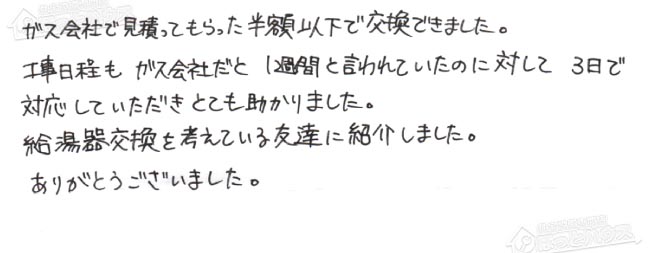 ガス会社で見積ってもらった半額以下で交換できました。
工事日程も ガス会社だと 1週間と言われていたのに対して 3日で
対応していただき とても助かりました。
給湯器交換を考えている友達に紹介しました。
ありがとうございました。